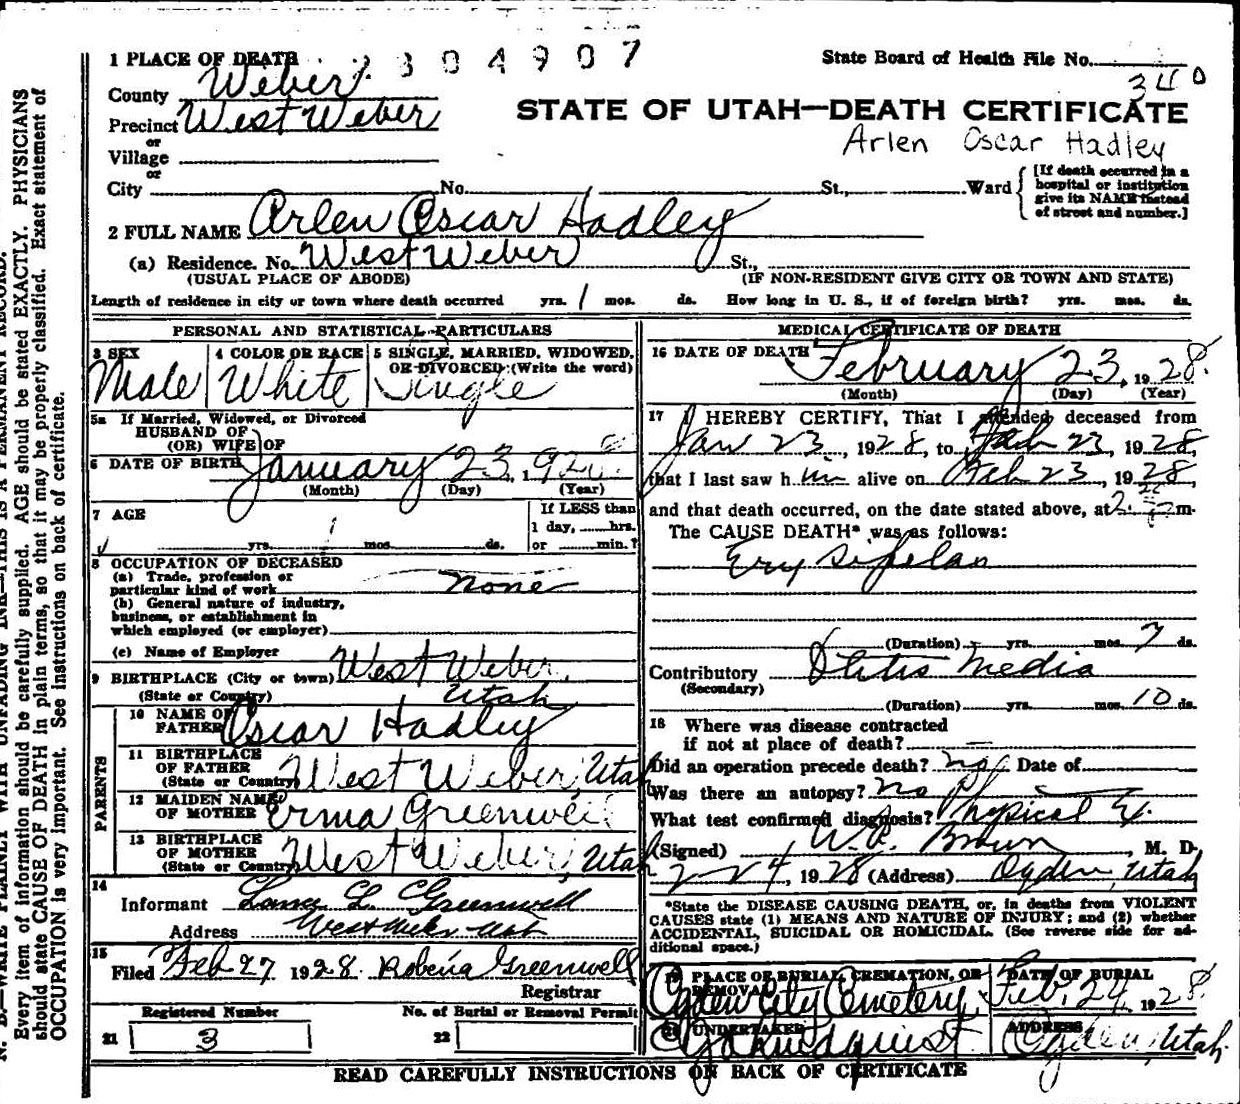 1 PLACE OF DEATH 2304907 State Board of Health File No. 340
County Weber
STATE OF UTAH—DEATH CERTIFICATE
Precinct West Weber
Arlen Oscar Hadley
or
Village
or
City No. St., Ward
[If death occurred in a
hospital or institution
give its NAME instead
of street and number.]
2 FULL NAME Arlen Oscar Hadley
(a) Residence. No. West Weber St.,
(USUAL PLACE OF ABODE) (IF NON-RESIDENT GIVE CITY OR TOWN AND STATE)
Length of residence in city or town where death occurred yrs. 1 mos. ds. How long in U. S., if of foreign birth? yrs. mos. ds.
PERSONAL AND STATISTICAL PARTICULARS
3 SEX 4 COLOR OR RACE 5 SINGLE, MARRIED, WIDOWED,
OR DIVORCED (Write the word)
Male White Single
5a If Married, Widowed, or Divorced
HUSBAND OF
(OR) WIFE OF
6 DATE OF BIRTH January 23, 1928
(Month) (Day) (Year)
7 AGE If LESS than
1 day, hrs.
1
yrs. mos. ds. or min.?
8 OCCUPATION OF DECEASED
(a) Trade, profession or
particular kind of work none
(b) General nature of industry,
business, or establishment in
which employed (or employer)
(c) Name of Employer
9 BIRTHPLACE (City or town) West Weber
(State or Country) Utah
PARENTS
10 NAME OF
FATHER Oscar Hadley
11 BIRTHPLACE
OF FATHER
(State or Country) West Weber, Utah
12 MAIDEN NAME
OF MOTHER Erma Greenwell
13 BIRTHPLACE
OF MOTHER
(State or Country) West Weber, Utah
14
Informant L. Greenwell
Address West Weber Utah
15
Filed Feb 27 1928 Robena Greenwell
Registrar
Registered Number No. of Burial or Removal Permit
21 3 22
MEDICAL CERTIFICATE OF DEATH
16 DATE OF DEATH February 23, 1928.
(Month) (Day) (Year)
17 I HEREBY CERTIFY, That I attended deceased from
Jan 23, 1928, to Feb 23, 1928,
that I last saw h im alive on Feb 23, 1928,
and that death occurred, on the date stated above, at 2 m.
The CAUSE DEATH* was as follows:
Erysipelas
(Duration) yrs. mos. 7 ds.
Contributory Otitis Media
(Secondary)
(Duration) yrs. mos. 10 ds.
18 Where was disease contracted
if not at place of death?
Did an operation precede death? no Date of
Was there an autopsy? no
What test confirmed diagnosis? Physical Ex.
(Signed) W. R. Brown, M. D.
2-24, 1928 (Address) Ogden, Utah
*State the DISEASE CAUSING DEATH, or, in deaths from VIOLENT
CAUSES state (1) MEANS AND NATURE OF INJURY; and (2) whether
ACCIDENTAL, SUICIDAL OR HOMICIDAL. (See reverse side for ad-
ditional space.)
19 PLACE OF BURIAL, CREMATION, OR DATE OF BURIAL
REMOVAL
Ogden City Cemetery Feb. 24, 1928.
20 UNDERTAKER ADDRESS
Lindquist Ogden, Utah
READ CAREFULLY INSTRUCTIONS ON BACK OF CERTIFICATE
N. B.—WRITE PLAINLY WITH UNFADING INK—THIS IS A PERMANENT RECORD.
Every item of information should be carefully supplied. AGE should be stated EXACTLY. PHYSICIANS
should state CAUSE OF DEATH in plain terms, so that it may be properly classified. Exact statement of
OCCUPATION is very important. See instructions on back of certificate.